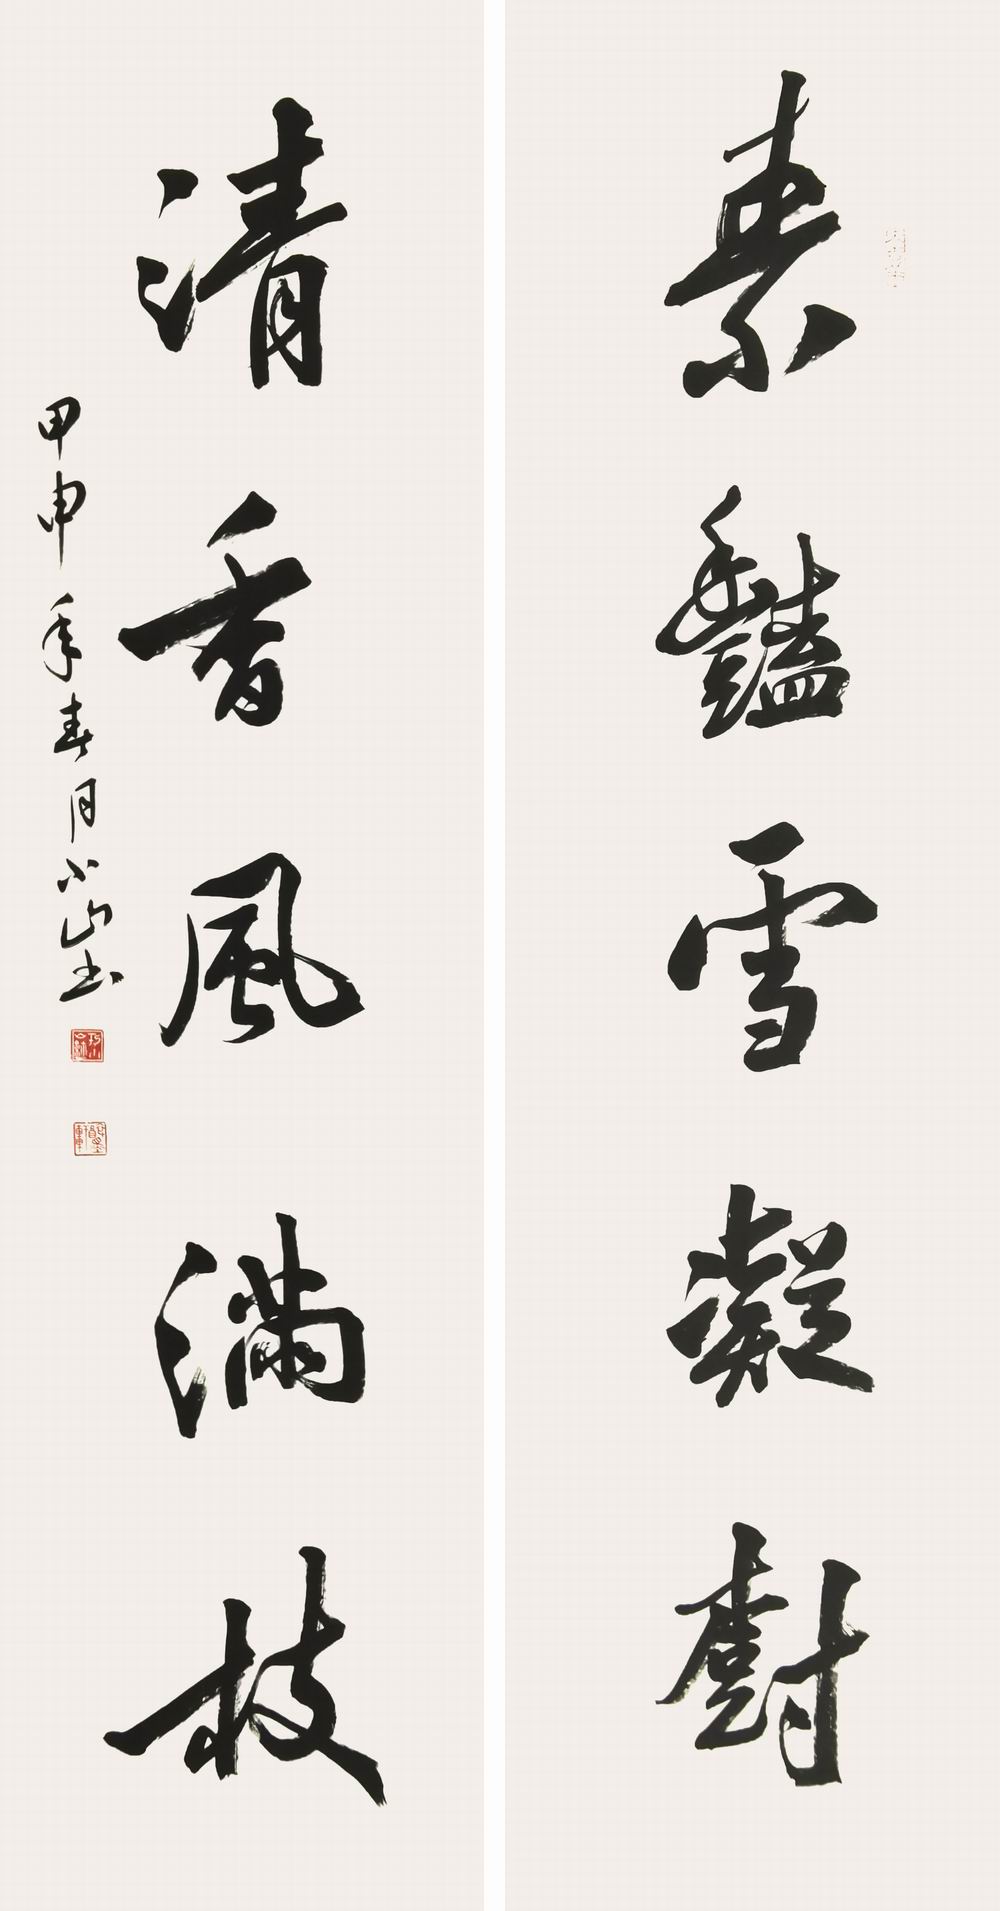 素豔雪凝樹
清香風滿枝
甲申年春月小山書